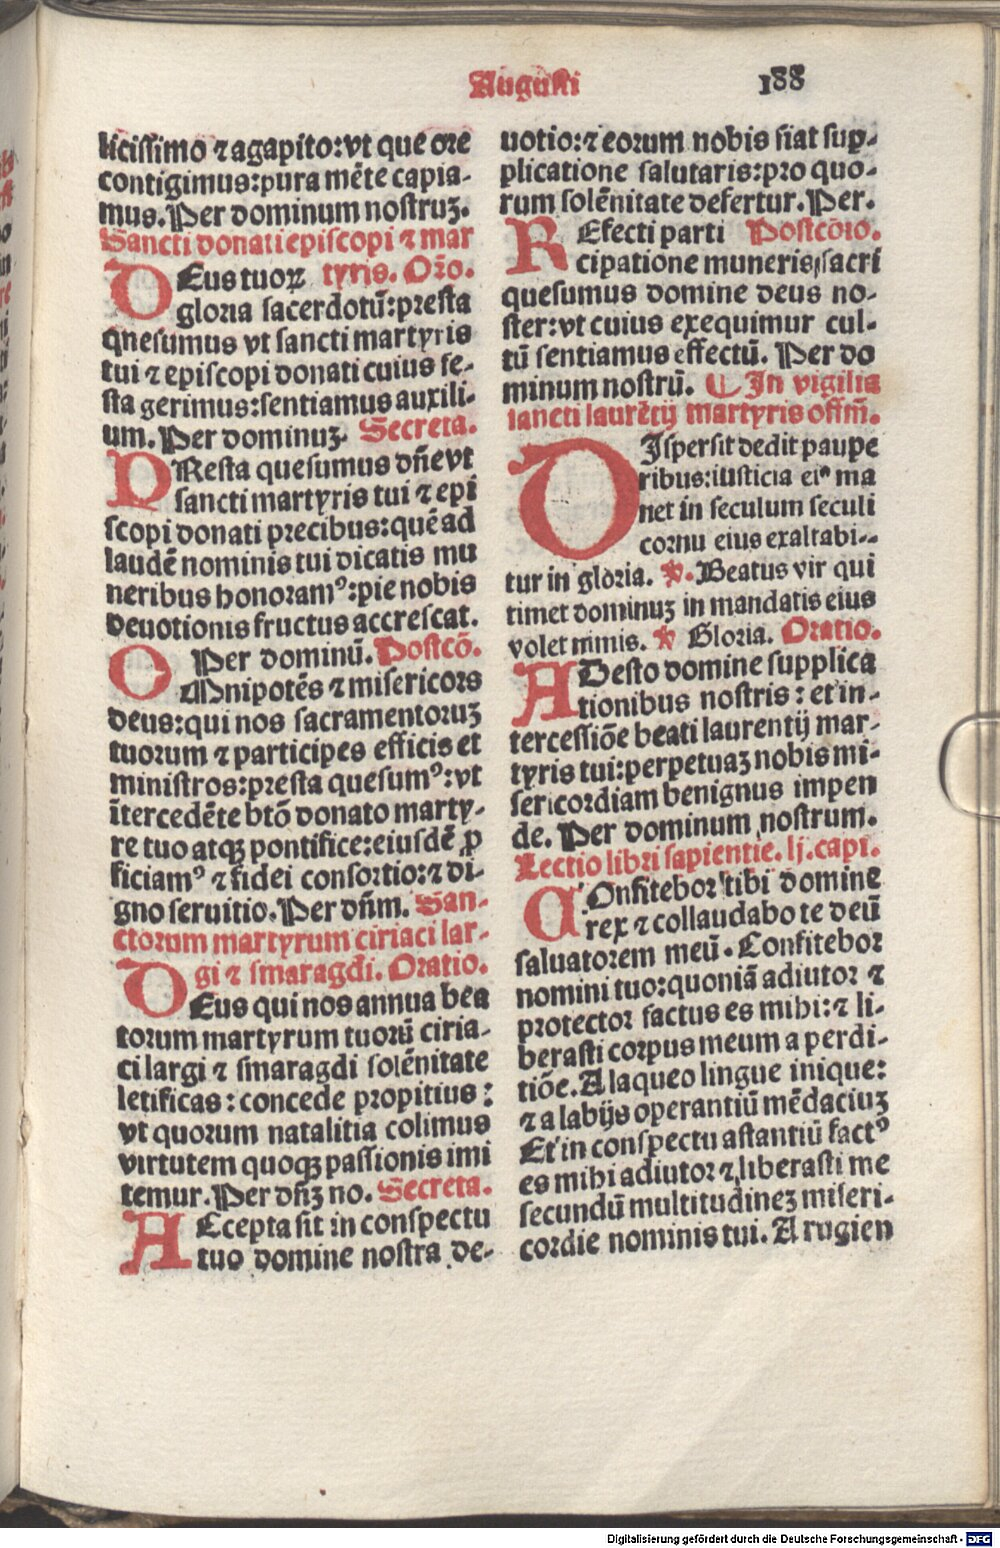 Augusti
188
licissimo ⁊ agapito: vt que ore
contigimus: pura mẽte capia-
mus. Per dominum nostruȝ.
Sancti donati episcopi ⁊ mar
tyris. Oꝛõ.
DEus tuoꝝ
gloria sacerdotũ: presta
qnesumus vt sancti martyris
tui ⁊ episcopi donati cuius fe-
sta gerimus: sentiamus auxili-
um. Per dominuȝ. Secreta.
PResta quesumus dñe vt
sancti martyris tui ⁊ epi
scopi donati precibus: quẽ ad
laudẽ nominis tui dicatis mu
neribus honoramꝰ: pie nobis
deuotionis fructus accrescat.
Per dominũ. Postcõ.
OMnipotẽs ⁊ misericors
deus: qui nos sacramentoruȝ
tuorum ⁊ participes efficis et
ministros: presta quesumꝰ: vt
ĩtercedẽte btõ donato marty-
re tuo atqꝫ pontifice: eiusdẽ ꝓ
ficiamꝰ ⁊ fidei consortio: ⁊ di-
gno seruitio. Per dñm. San-
ctorum martyrum ciriaci lar-
gi ⁊ smaragdi. Oratio.
DEus qui nos annua bea
torum martyrum tuorũ ciria-
ci largi ⁊ smaragdi solẽnitate
letificas: concede propitius:
vt quorum natalitia colimus
virtutem quoqꝫ passionis imi
temur. Per dñȝ no. Secreta.
ACcepta sit in conspectu
tuo domine nostra de-
uotio: ⁊ eorum nobis fiat sup-
plicatione salutaris: pro quo-
rum solẽnitate defertur. Per.
REfecti parti Postcõio.
cipatione muneris sacri
quesumus domine deus no-
ster: vt cuius exequimur cul-
tũ sentiamus effectũ. Per do
minum nostrũ. ¶ In vigilia
sancti laurẽtij martyris offm̃.
DIspersit dedit paupe
ribus: iusticia eiꝰ ma
net in seculum seculi
cornu eius exaltabi-
tur in gloria. ps. Beatus vir qui
timet dominuȝ in mandatis eius
volet nimis. ℣ Gloria. Oratio.
ADesto domine supplica
tionibus nostris: et in-
tercessiõe beati laurentij mar-
tyris tui: perpetuaȝ nobis mi-
sericordiam benignus impen
de. Per dominum nostrum.
Lectio libri sapientie. lj. capi.
COnfitebor tibi domine
rex ⁊ collaudabo te deũ
saluatorem meũ. Confitebor
nomini tuo: quoniã adiutor ⁊
protector factus es mihi: ⁊ li-
berasti corpus meum a perdi-
tiõe. A laqueo lingue inique:
⁊ a labijs operantiũ mẽdaciuȝ
Et in conspectu astantiũ factꝰ
es mihi adiutor ⁊ liberasti me
secundũ multitudineȝ miseri-
cordie nominis tui. A rugien
Digitalisierung gefördert durch die Deutsche Forschungsgemeinschaft - DFG